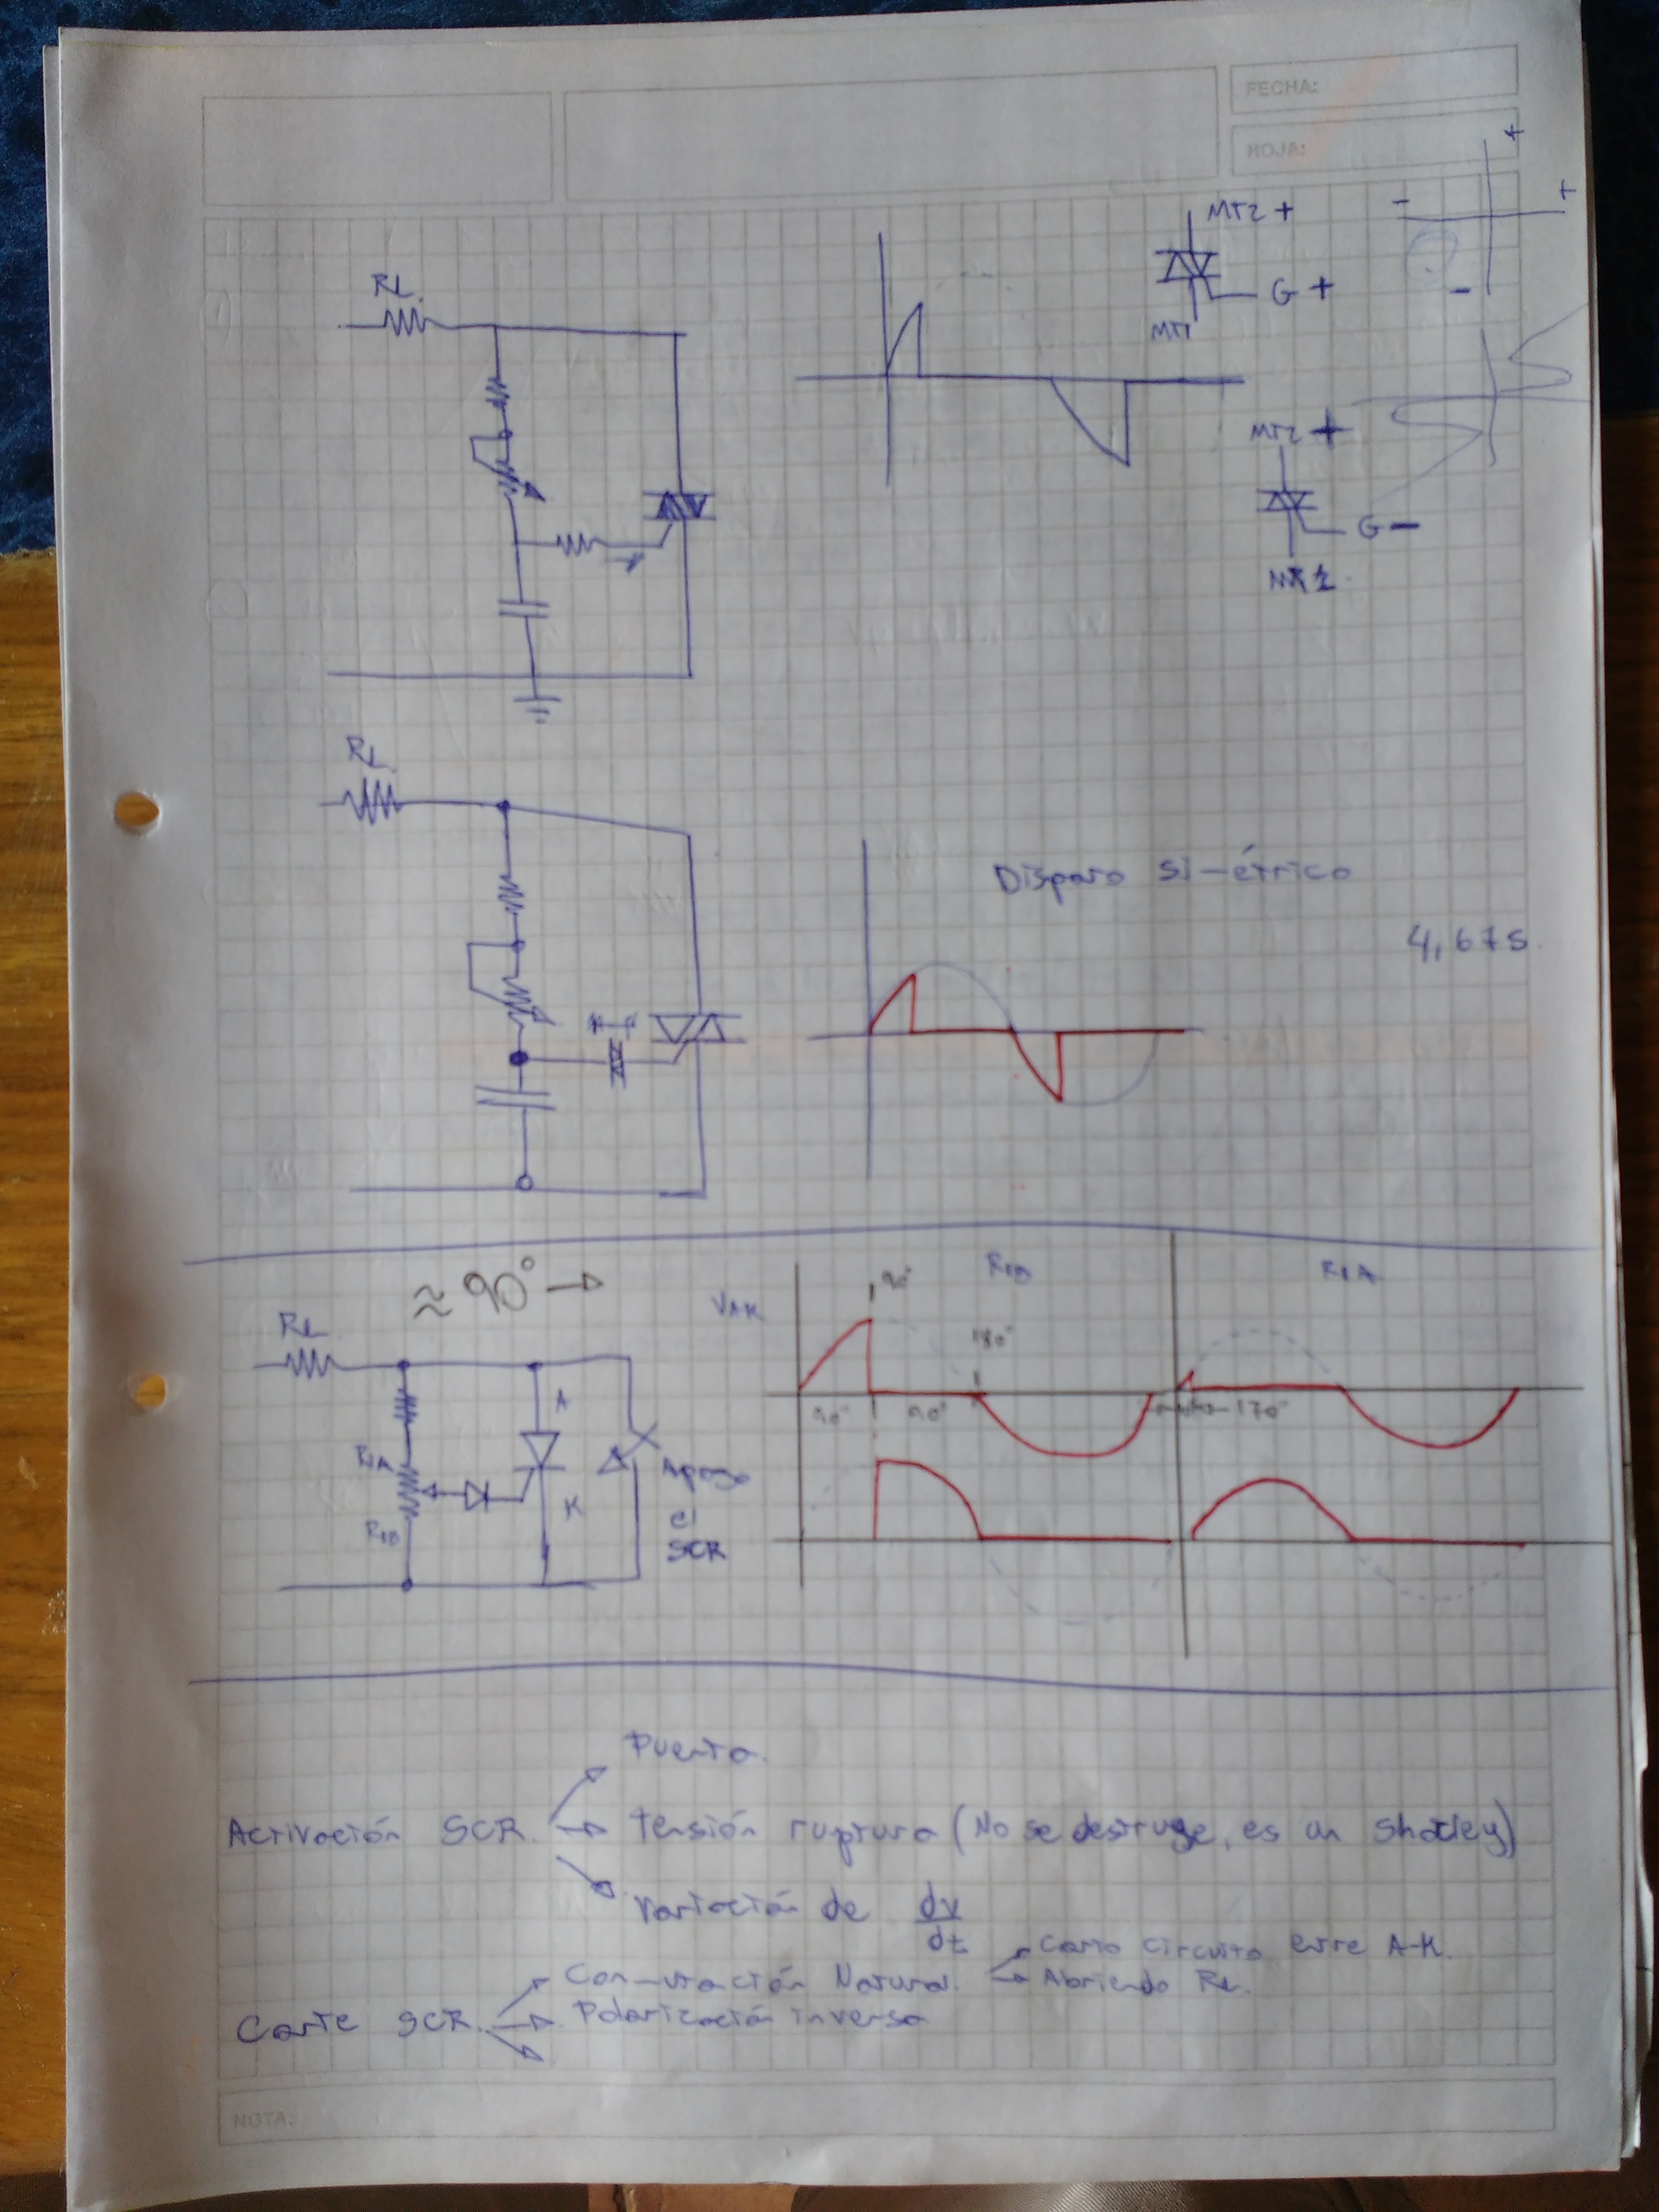 FECHA:
HOJA:
+
- +
-
MT2 +
G +
MT1
RL
MT2 +
G -
MT1
RL
Disparo si-étrico
4,67s
≈ 90° →
RL
A
K
R1A
R1B
Apago
el
SCR
VAK
R1B
R1A
90°
180°
90°
90°
170°
Puerta
Activación SCR
Tensión ruptura (No se destruye, es un Shockley)
Variación de dv/dt
Corte SCR
Conmutación Natural
Corto circuito entre A-K.
Abriendo RL.
Polarización inversa
NOTA: